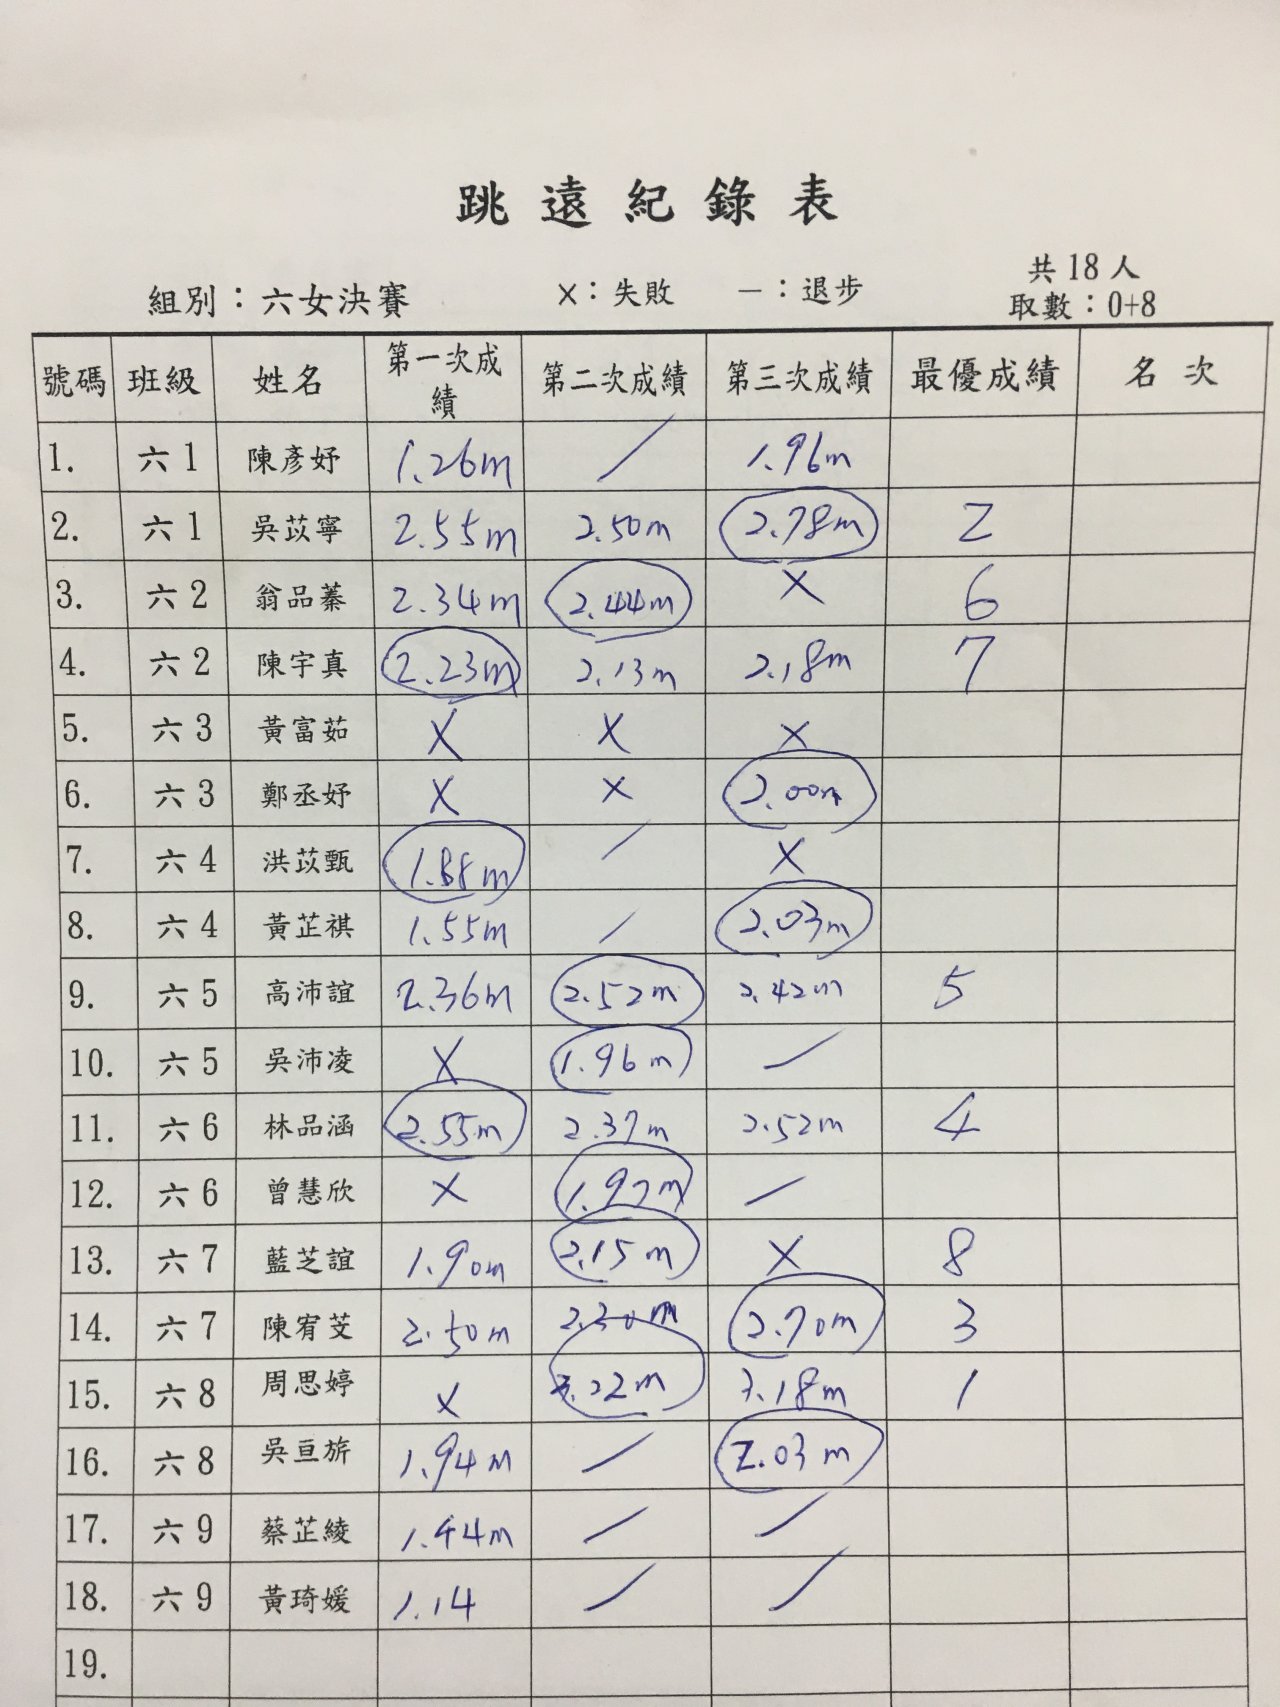 跳遠紀錄表
組別：六女決賽 ×：失敗 －：退步 共18人
取數：0+8
號碼 班級 姓名 第一次成績 第二次成績 第三次成績 最優成績 名次
1. 六1 陳彥妤 1.26m / 1.96m
2. 六1 吳苡寧 2.55m 2.50m 2.78m 2
3. 六2 翁品蓁 2.34m 2.44m × 6
4. 六2 陳宇真 2.23m 2.13m 2.18m 7
5. 六3 黃富茹 × × ×
6. 六3 鄭丞妤 × × 2.00m
7. 六4 洪苡甄 1.88m / ×
8. 六4 黃芷祺 1.55m / 2.03m
9. 六5 高沛誼 2.36m 2.52m 2.42m 5
10. 六5 吳沛凌 × 1.96m /
11. 六6 林品涵 2.55m 2.37m 2.52m 4
12. 六6 曾慧欣 × 1.97m /
13. 六7 藍芝誼 1.90m 2.15m × 8
14. 六7 陳宥芠 2.50m 2.30m 2.70m 3
15. 六8 周思婷 × 3.22m 3.18m 1
16. 六8 吳亘旂 1.94m / 2.03m
17. 六9 蔡芷綾 1.44m / /
18. 六9 黃琦媛 1.14 / /
19.